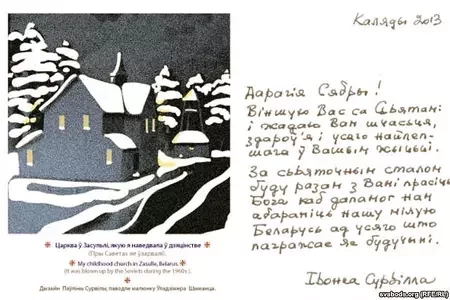 Каляды 2013
Дарагія Сябры!
Віншую Вас са Сьвятамі
і жадаю Вам шчасьця,
здароўя і усяго найлеп-
шага ў Вашым жыцьці.
За сьвяточным сталом
буду разам з Вамі прасіць
Бога каб дапамог нам
абараніць нашу мілую
Беларусь ад усяго што
пагражае яе будучыні.
Івонка Сурвілла
Царква ў Засульлі, якую я наведвала ў дзяцінстве
(Пры Саветах яе ўзарвалі).
My childhood church in Zasulle, Belarus.
(It was blown up by the Soviets during the 1960s).
Дызайн Паўлінкі Сурвілы, паводле малюнку Уладзімера Шыманца.
svaboda.org (RFE/RL)